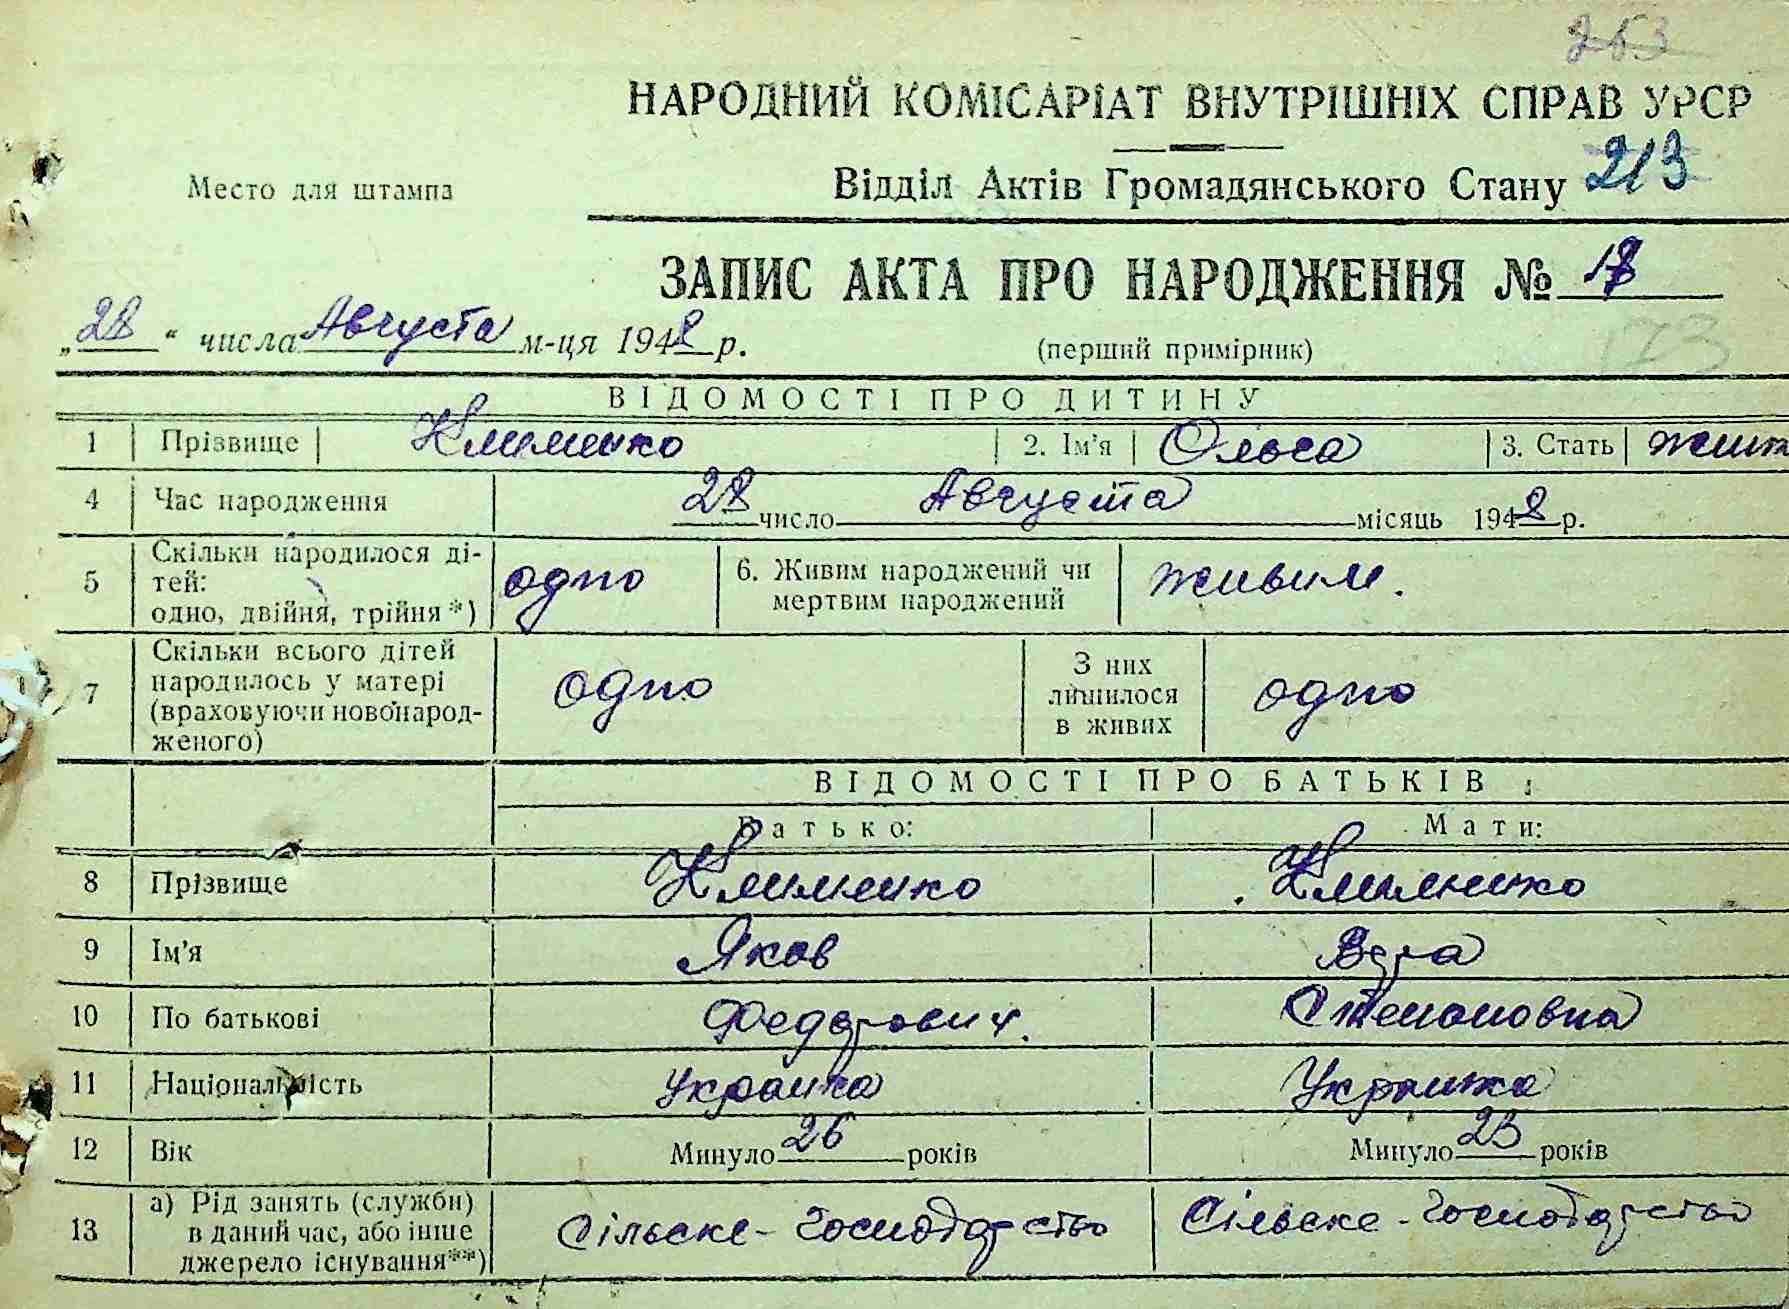 263
НАРОДНИЙ КОМІСАРІАТ ВНУТРІШНІХ СПРАВ УРСР
Место для штампа
Відділ Актів Громадянського Стану 213
ЗАПИС АКТА ПРО НАРОДЖЕННЯ № 18
„28“ числа Августа м-ця 1948 р.
(перший примірник) 173
ВІДОМОСТІ ПРО ДИТИНУ
1 Прізвище Клименко 2. Ім'я Ольга 3. Стать
4 Час народження 28 число Августа місяць 1948 р.
5 Скільки народилося ді-
тей:
одно, двійня, трійня *) одно 6. Живим народжений чи
мертвим народжений живим.
7 Скільки всього дітей
народилось у матері
(враховуючи новонарод-
женого) одно З них
лишилося
в живих одно
ВІДОМОСТІ ПРО БАТЬКІВ
Батько: Мати:
8 Прізвище Клименко Клименко
9 Ім'я Яков Вера
10 По батькові Федорович. Степановна
11 Національність Украинка Украинка
12 Вік Минуло 26 років Минуло 23 років
13 а) Рід занять (служби)
в даний час, або інше
джерело існування**) Сільске-Господарство Сільске-Господарство